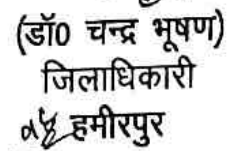 (डॉ0 चन्द्र भूषण)
जिलाधिकारी
हमीरपुर